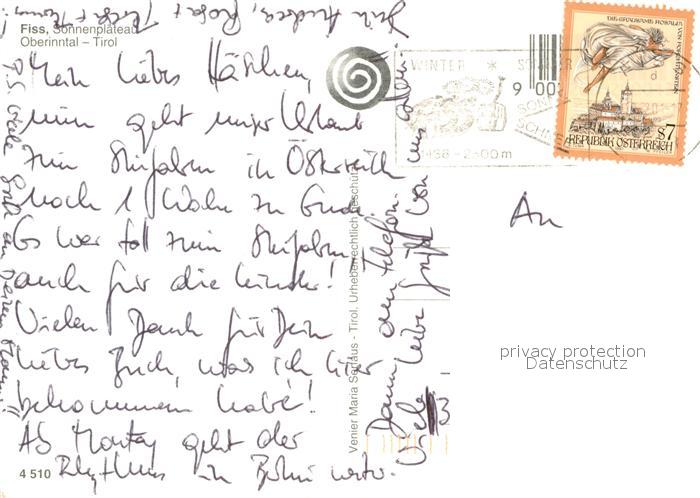 Fiss, Sonnenplateau
Oberinntal – Tirol
Mein liebes Häschen,
nun geht unser Urlaub
zum Skifahren in Österreich
nach 1 Woche zu Ende.
Es war toll zum Skifahren,
auch für die Kinder!
Vielen Dank für Dein
liebes Buch, was ich hier
bekommen habe!
Ab Montag geht der
Rhythmus in weiter.
4 510
Dann am Telefon.
Viele liebe Grüße von uns allen
P.S. Viele Grüße an Deine
Venier Maria - Tirol. Urheberrechtlich geschützt
WINTER * SOMMER
9 00
SONNE
SCHNEE
1436 - 2800 m
DIE GRAUSAME ROSALIA VON FORCHTENSTEIN
S 7
REPUBLIK ÖSTERREICH
An
privacy protection
Datenschutz